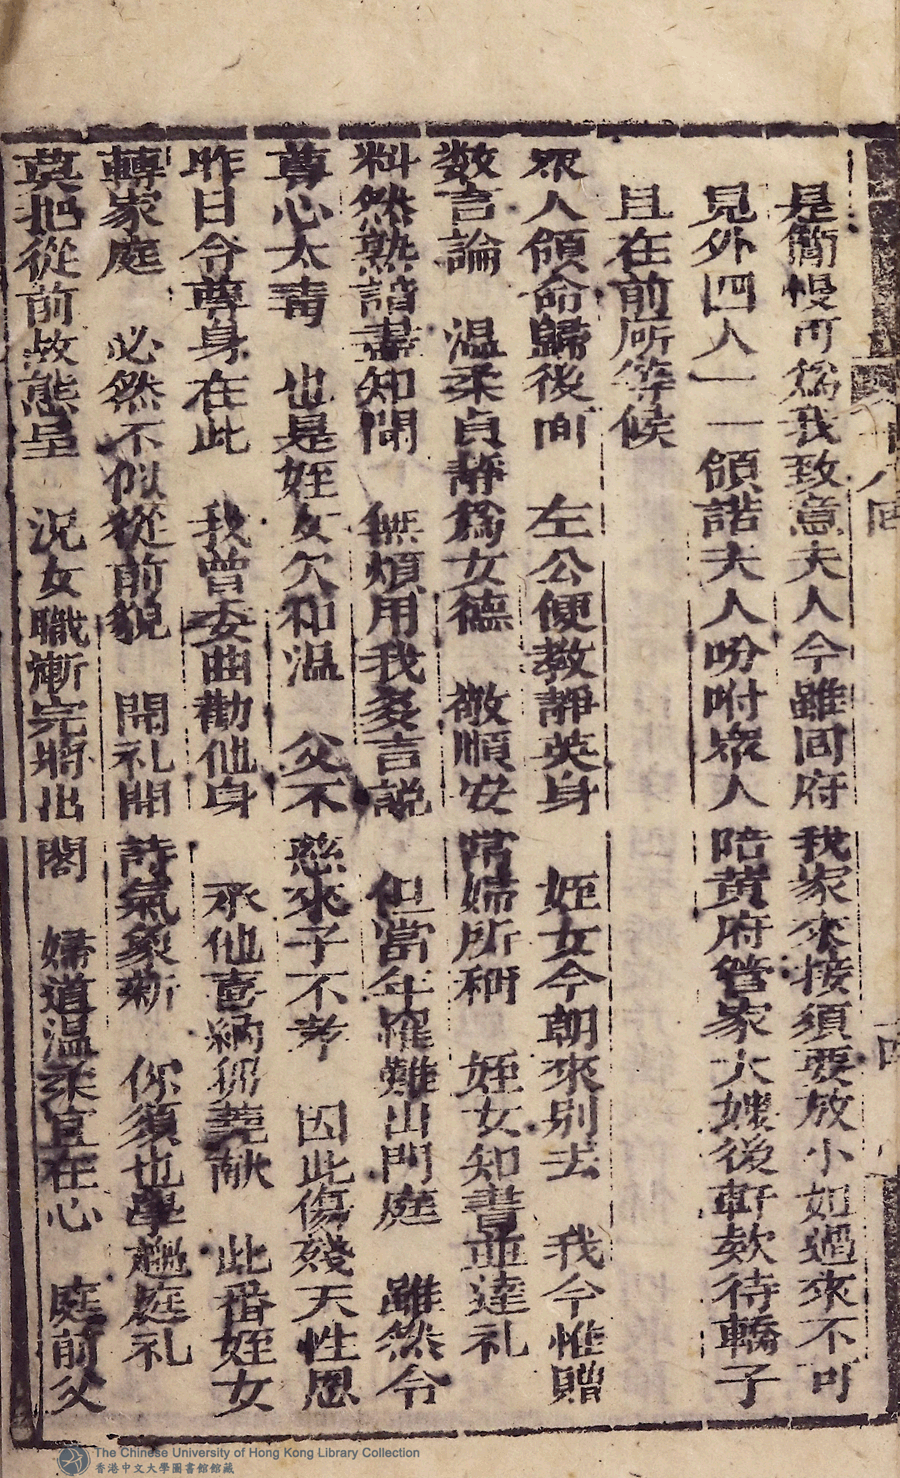 是簡慢可為我致意夫人今雖回府我家來接須要放小姐過來不可
見外四人一一領諾夫人吩咐眾人陪黄府管家大嫂後軒欵待轎子
且在前所等候
眾人領命歸後面　左公便教靜英身　姪女今朝來别去　我今惟贈
数言論　温柔貞靜為女德　敬順安常婦所稱　姪女知書並達礼
料然熟諳盡知聞　無煩用我多言説　但當年罹難出門庭　雖然令
尊心太毒　也是姪女欠和温　父不慈來子不孝　因此傷殘天性恩
昨日令尊身在此　我曾委曲勸他身　承他喜納芻蕘献　此番姪女
轉家庭　必然不似從前貌　開礼開詩氣象新　你須也學趨庭礼
莫把從前故態呈　况女職慚完將出閣　婦道温柔宜在心　庭前父
The Chinese University of Hong Kong Library Collection
香港中文大學圖書館館藏